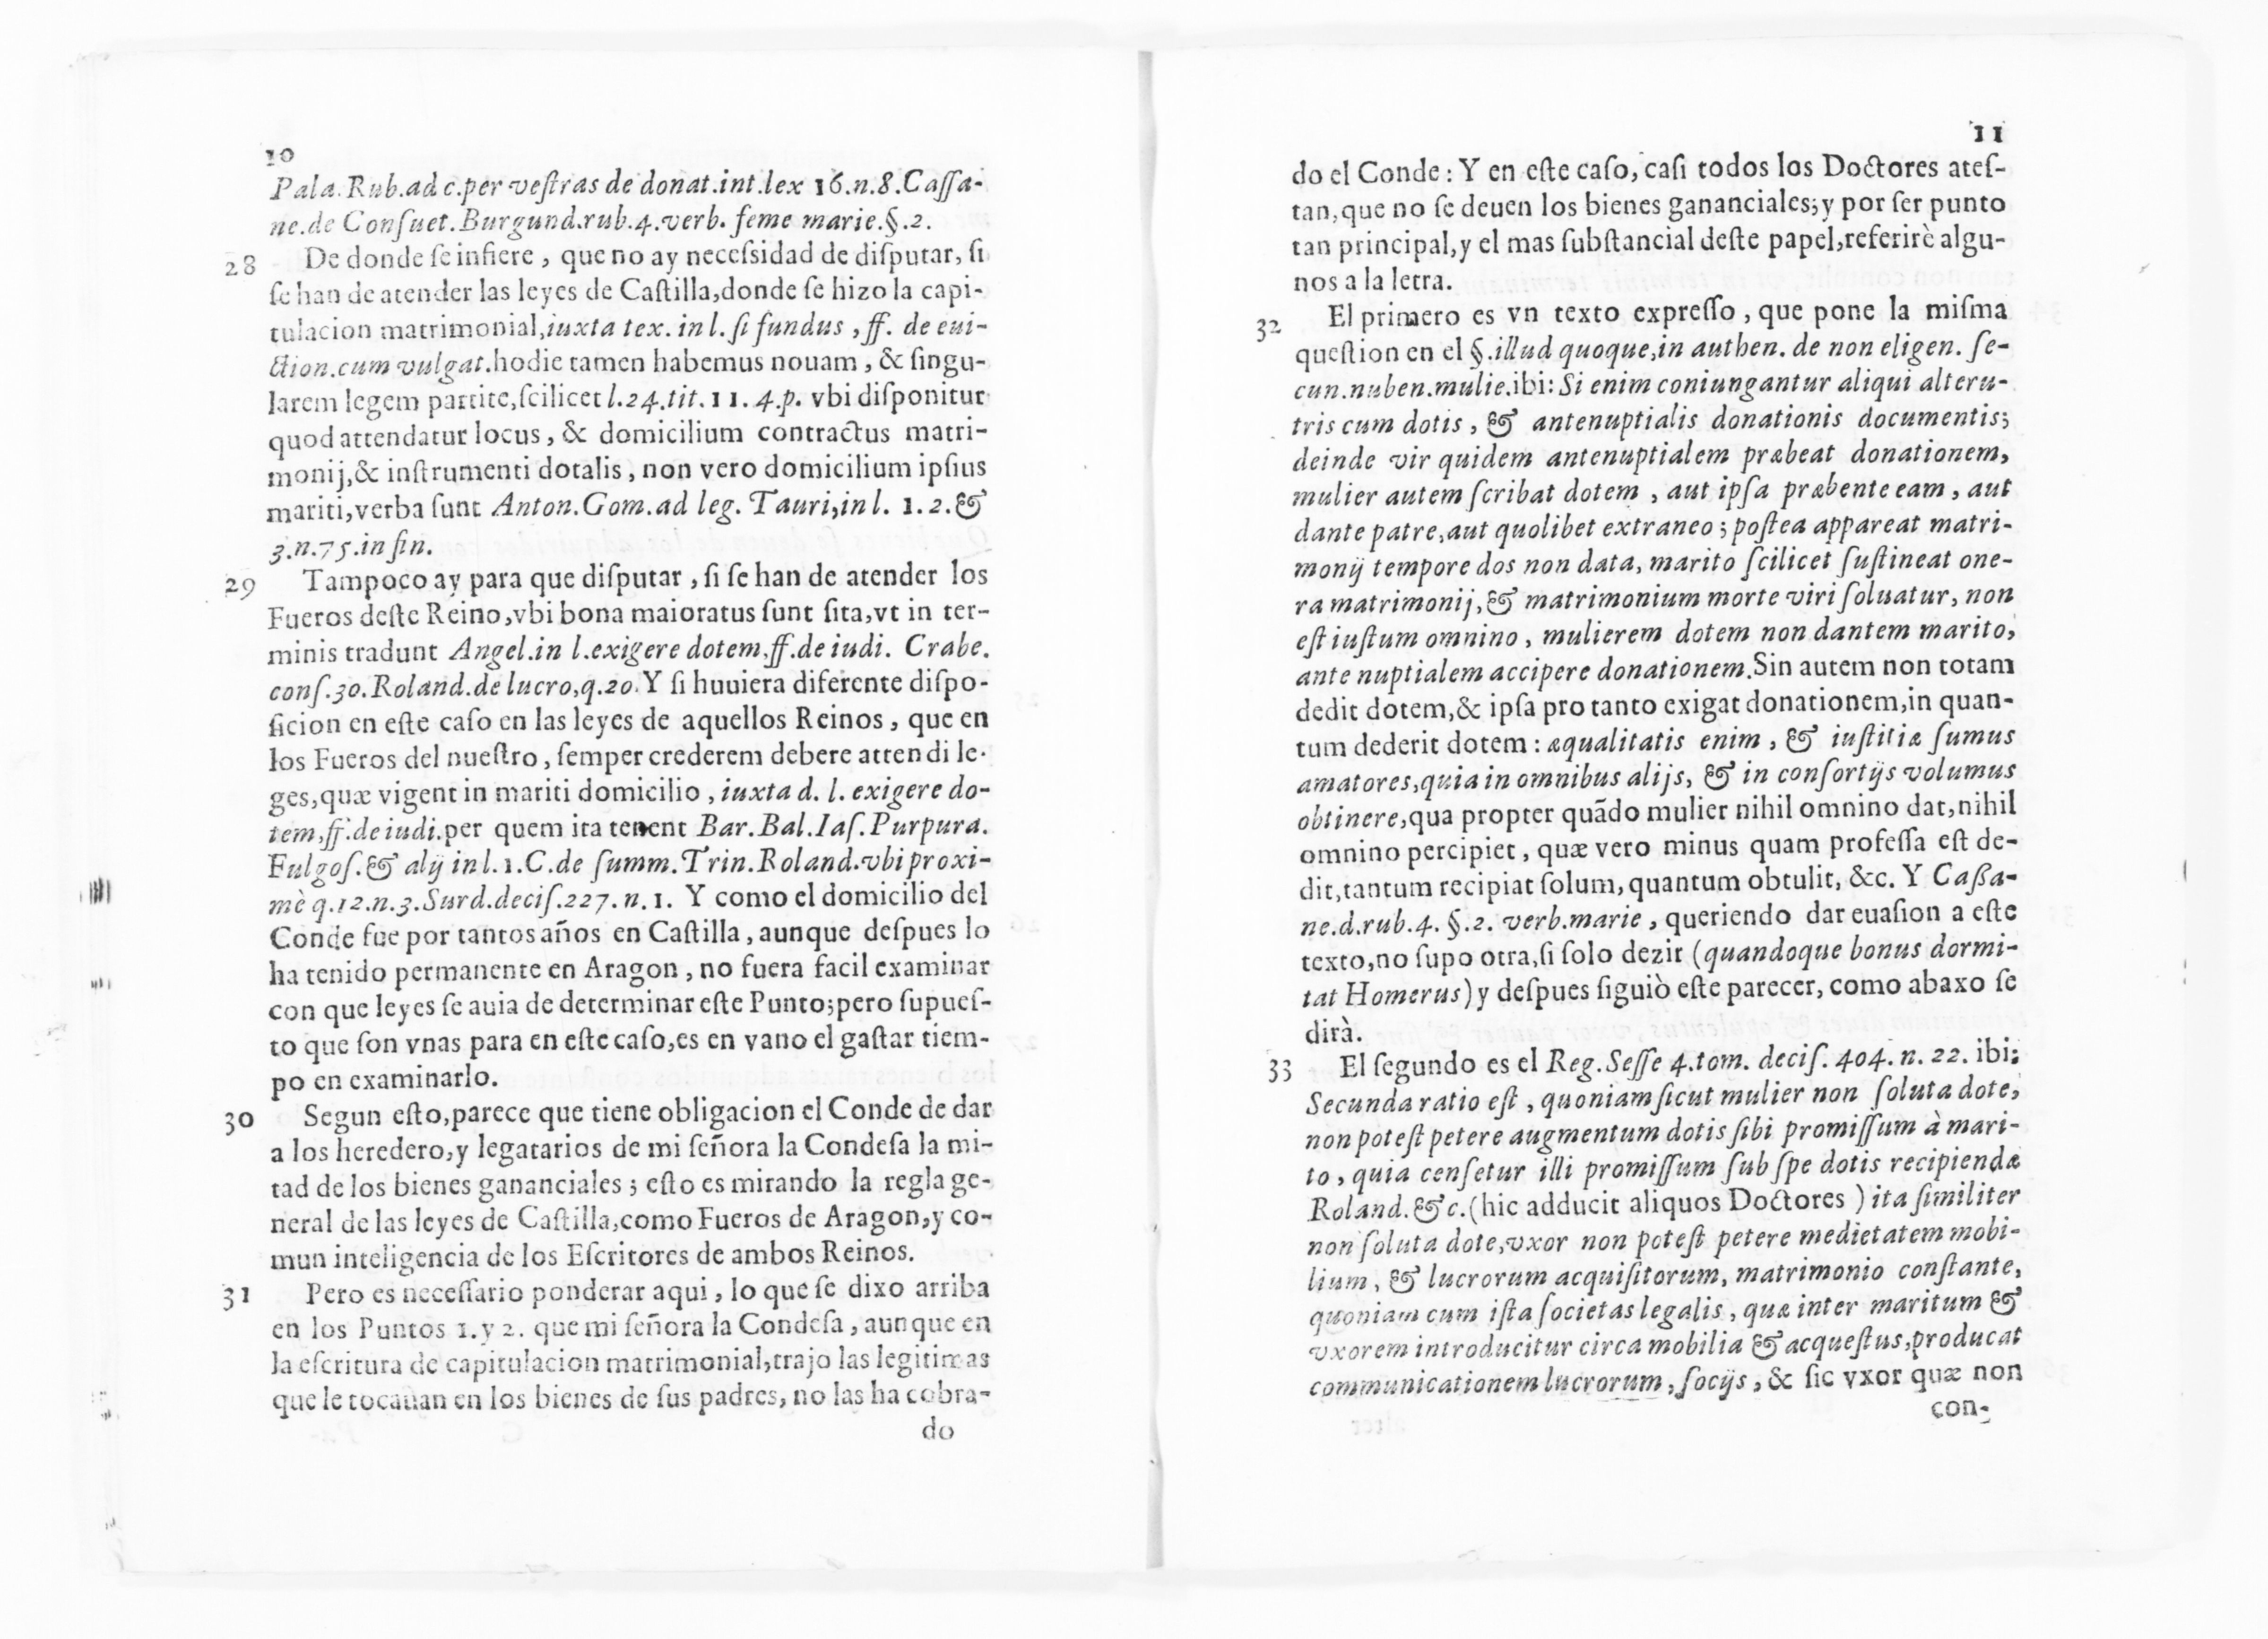 10
Pala. Rub.ad c.per veſtras de donat.int.lex 16.n.8.Caſſa-
ne.de Conſuet.Burgund.rub.4.verb. feme marie.§.2.
28 De donde ſe infiere, que no ay neceſsidad de diſputar, ſi
ſe han de atender las leyes de Caſtilla,donde ſe hizo la capi-
tulacion matrimonial,iuxta tex. in l. ſi fundus, ff. de eui-
ction.cum vulgat.hodie tamen habemus nouam, & ſingu-
larem legem partite,ſcilicet l.24.tit.11.4.p. vbi diſponitur
quod attendatur locus, & domicilium contractus matri-
monij,& inſtrumenti dotalis, non vero domicilium ipſius
mariti,verba ſunt Anton.Gom.ad leg. Tauri,in l. 1.2.&
3.n.75.in fin.
29 Tampoco ay para que diſputar, ſi ſe han de atender los
Fueros deſte Reino,vbi bona maioratus ſunt ſita,vt in ter-
minis tradunt Angel.in l.exigere dotem,ff.de iudi. Crabe.
conſ.30.Roland.de lucro,q.20.Y ſi huuiera diferente diſpo-
ſicion en eſte caſo en las leyes de aquellos Reinos, que en
los Fueros del nueſtro, ſemper crederem debere attendi le-
ges,quæ vigent in mariti domicilio, iuxta d. l. exigere do-
tem,ff.de iudi.per quem ita tenent Bar.Bal.Iaſ.Purpura.
Fulgoſ.& alij in l.1.C.de ſumm.Trin.Roland.vbi proxi-
mè q.12.n.3.Surd.deciſ.227.n.1. Y como el domicilio del
Conde fue por tantos años en Caſtilla, aunque deſpues lo
ha tenido permanente en Aragon, no fuera facil examinar
con que leyes ſe auia de determinar eſte Punto;pero ſupueſ-
to que ſon vnas para en eſte caſo,es en vano el gaſtar tiem-
po en examinarlo.
30 Segun eſto,parece que tiene obligacion el Conde de dar
a los heredero,y legatarios de mi ſeñora la Condeſa la mi-
tad de los bienes gananciales; eſto es mirando la regla ge-
neral de las leyes de Caſtilla,como Fueros de Aragon,y co-
mun inteligencia de los Eſcritores de ambos Reinos.
31 Pero es neceſſario ponderar aqui, lo que ſe dixo arriba
en los Puntos 1.y 2. que mi ſeñora la Condeſa, aunque en
la eſcritura de capitulacion matrimonial,trajo las legitimas
que le tocauan en los bienes de ſus padres, no las ha cobra-
do
11
do el Conde: Y en eſte caſo, caſi todos los Doctores ateſ-
tan,que no ſe deuen los bienes gananciales;y por ſer punto
tan principal,y el mas ſubſtancial deſte papel,referirè algu-
nos a la letra.
32 El primero es vn texto expreſſo, que pone la miſma
queſtion en el §.illud quoque,in authen. de non eligen. ſe-
cun.nuben.mulie.ibi: Si enim coniungantur aliqui alteru-
tris cum dotis, & antenuptialis donationis documentis;
deinde vir quidem antenuptialem præbeat donationem,
mulier autem ſcribat dotem, aut ipſa præbente eam, aut
dante patre,aut quolibet extraneo; poſtea appareat matri-
monij tempore dos non data, marito ſcilicet ſuſtineat one-
ra matrimonij,& matrimonium morte viri ſoluatur, non
eſt iuſtum omnino, mulierem dotem non dantem marito,
ante nuptialem accipere donationem.Sin autem non totam
dedit dotem,& ipſa pro tanto exigat donationem,in quan-
tum dederit dotem: æqualitatis enim, & iuſtitiæ ſumus
amatores,quia in omnibus alijs, & in conſortijs volumus
obtinere,qua propter quãdo mulier nihil omnino dat,nihil
omnino percipiet, quæ vero minus quam profeſſa eſt de-
dit,tantum recipiat ſolum,quantum obtulit, &c. Y Caßa-
ne.d.rub.4. §.2. verb.marie, queriendo dar euaſion a eſte
texto,no ſupo otra,ſi ſolo dezir (quandoque bonus dormi-
tat Homerus) y deſpues ſiguiò eſte parecer, como abaxo ſe
dirà.
33 El ſegundo es el Reg.Seſſe 4.tom. deciſ. 404. n. 22. ibi:
Secunda ratio eſt, quoniam ſicut mulier non ſoluta dote,
non poteſt petere augmentum dotis ſibi promiſſum à mari-
to, quia cenſetur illi promiſſum ſub ſpe dotis recipiendæ
Roland.&c.(hic adducit aliquos Doctores) ita ſimiliter
non ſoluta dote,vxor non poteſt petere medietatem mobi-
lium, & lucrorum acquiſitorum, matrimonio conſtante,
quoniam cum iſta ſocietas legalis, quæ inter maritum &
vxorem introducitur circa mobilia & acqueſtus,producat
communicationem lucrorum, ſocijs, & ſic vxor quæ non
con-